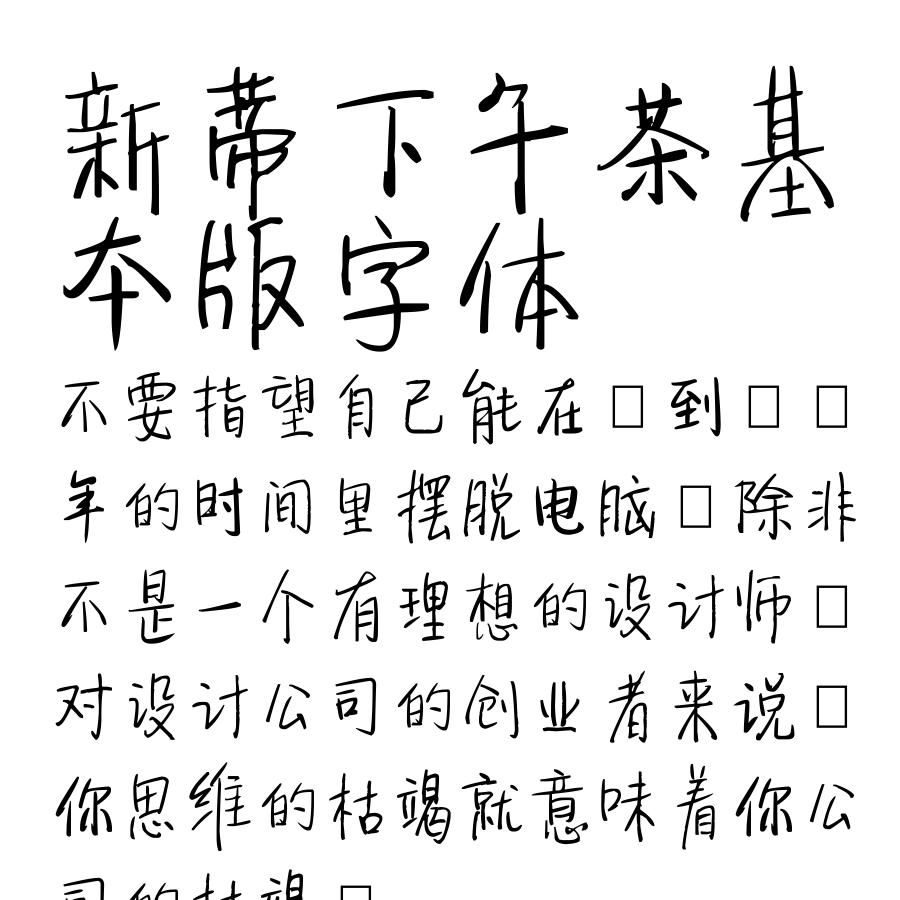 新蒂下午茶基
本版字体
不要指望自己能在□到□□
年的时间里摆脱电脑□除非
不是一个有理想的设计师□
对设计公司的创业者来说□
你思维的枯竭就意味着你公
司的枯竭□